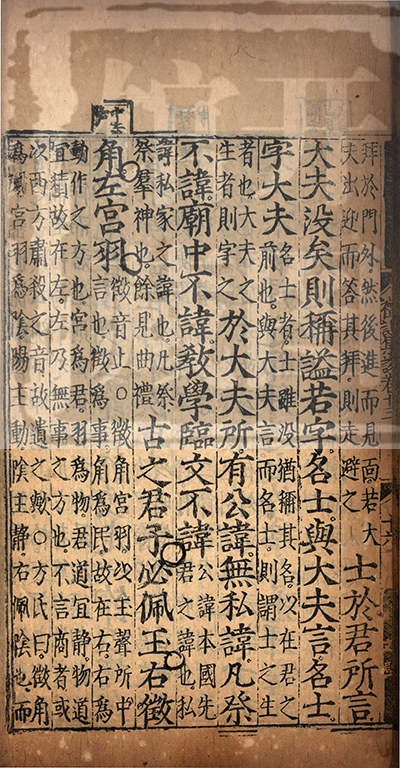 拜於門外然後進而見面若大
夫出迎而答其拜則走避之
士於君所言
大夫没矣則稱謚若字名士與大夫言名士
字大夫
名士者士雖没猶稱其名以在君之
前也與大夫言而名士則謂士之生
者也大夫之
生者則字之
於大夫所有公諱無私諱凡祭
不諱廟中不諱敎學臨文不諱
公諱本國先
君之諱也私
諱私家之諱也凡祭
祭羣神也餘見曲禮
古之君子必佩玉右徵
角左宮羽
徵音止○徵角宮羽以主聲所中
言也徵爲事角爲民故在右右爲
動作之方也宮爲君羽爲物君道宜靜物道
宜積故在左左乃無事之方也不言商者或
以西方肅殺之音故遺之歟○方氏曰徵角
爲陽宮羽爲陰陽主動陰主靜右佩陰也而